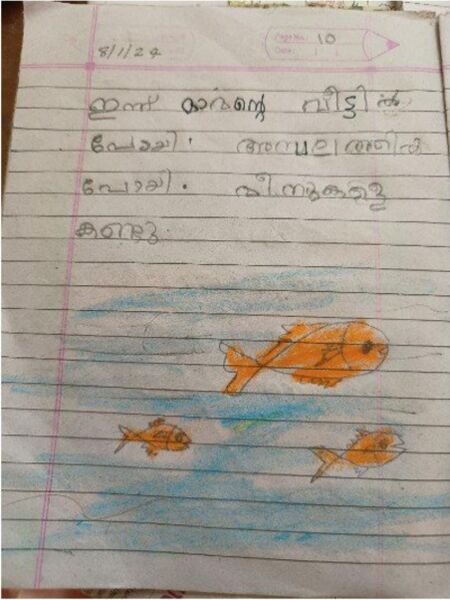 Page No.: 10
8/1/24
Date:
ഇന്ന് വീട്ടിൽ
പോയി. അമ്പലത്തിൽ
പോയി. മീനുകളെ
കണ്ടു.